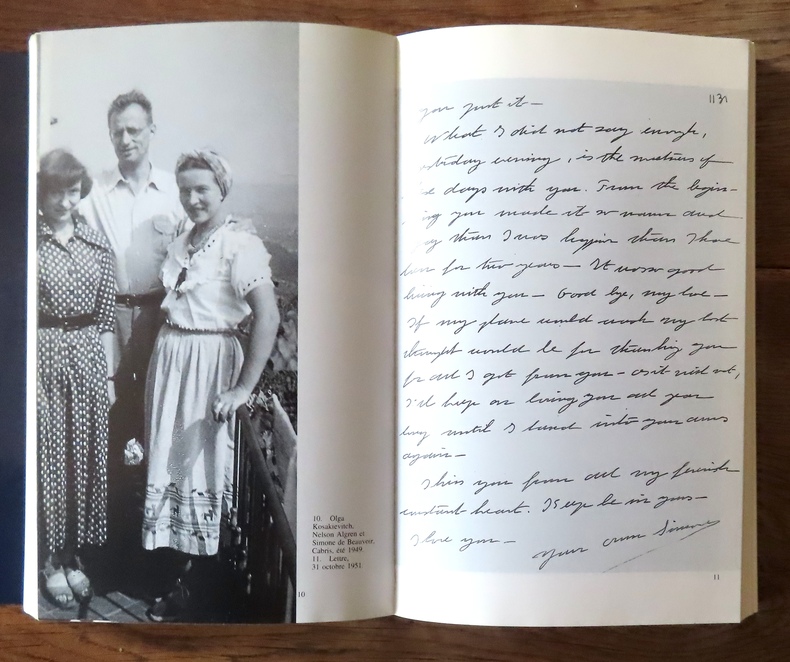 10. Olga
Kosakievitch,
Nelson Algren et
Simone de Beauvoir,
Cabris, été 1949.
11. Lettre,
31 octobre 1951.
10
you put it —
What I did not say enough,
evening, is the of
days with you. From the begin-
ing you made it so warm and
than I was happier than I have
been for two years — It was so good
living with you — Good bye, my love —
If my plane would crash my last
thought would be for thanking you
for all I got from you — as it will not,
I'll keep on loving you all year
long until I land into your arms
again —
I kiss you from all my
constant heart. I in yours —
I love you —
your own Simone
11